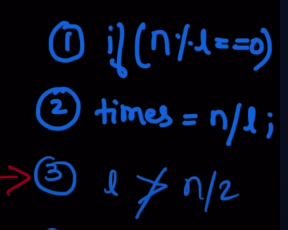 ① if (n % l == 0)
② times = n/l;
③ l ≯ n/2